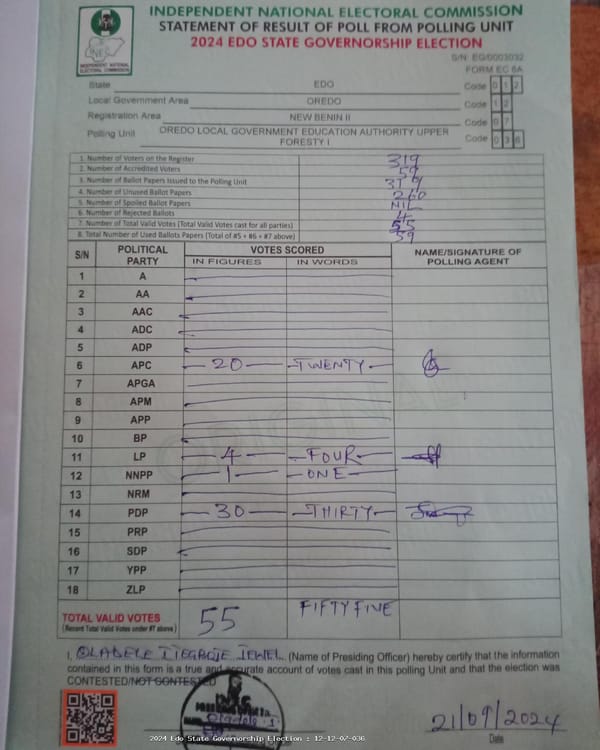 INDEPENDENT NATIONAL ELECTORAL COMMISSION
STATEMENT OF RESULT OF POLL FROM POLLING UNIT
2024 EDO STATE GOVERNORSHIP ELECTION
INEC
INDEPENDENT NATIONAL
ELECTORAL COMMISSION
S/N: EG/0003032
FORM EC 8A
State EDO Code 0 1 2
Local Government Area OREDO Code 1 2
Registration Area NEW BENIN II Code 0 7
Polling Unit OREDO LOCAL GOVERNMENT EDUCATION AUTHORITY UPPER FORESTY I Code 0 3 6
1. Number of Voters on the Register 319
2. Number of Accredited Voters 59
3. Number of Ballot Papers Issued to the Polling Unit 319
4. Number of Unused Ballot Papers 260
5. Number of Spoiled Ballot Papers NIL
6. Number of Rejected Ballots 4
7. Number of Total Valid Votes (Total Valid Votes cast for all parties) 55
8. Total Number of Used Ballots Papers (Total of #5 + #6 + #7 above) 59
S/N POLITICAL PARTY VOTES SCORED NAME/SIGNATURE OF POLLING AGENT
IN FIGURES IN WORDS
1 A
2 AA
3 AAC
4 ADC
5 ADP
6 APC 20 TWENTY
7 APGA
8 APM
9 APP
10 BP
11 LP 4 FOUR
12 NNPP 1 ONE
13 NRM
14 PDP 30 THIRTY
15 PRP
16 SDP
17 YPP
18 ZLP
ORIGINAL
TOTAL VALID VOTES 55 FIFTY FIVE
(Record Total Valid Votes under #7 above)
I, OLABELE JEWEL (Name of Presiding Officer) hereby certify that the information
contained in this form is a true and accurate account of votes cast in this polling Unit and that the election was
CONTESTED/NOT CONTESTED
21/09/2024
Date
2024 Edo State Governorship Election : 12-12-07-036